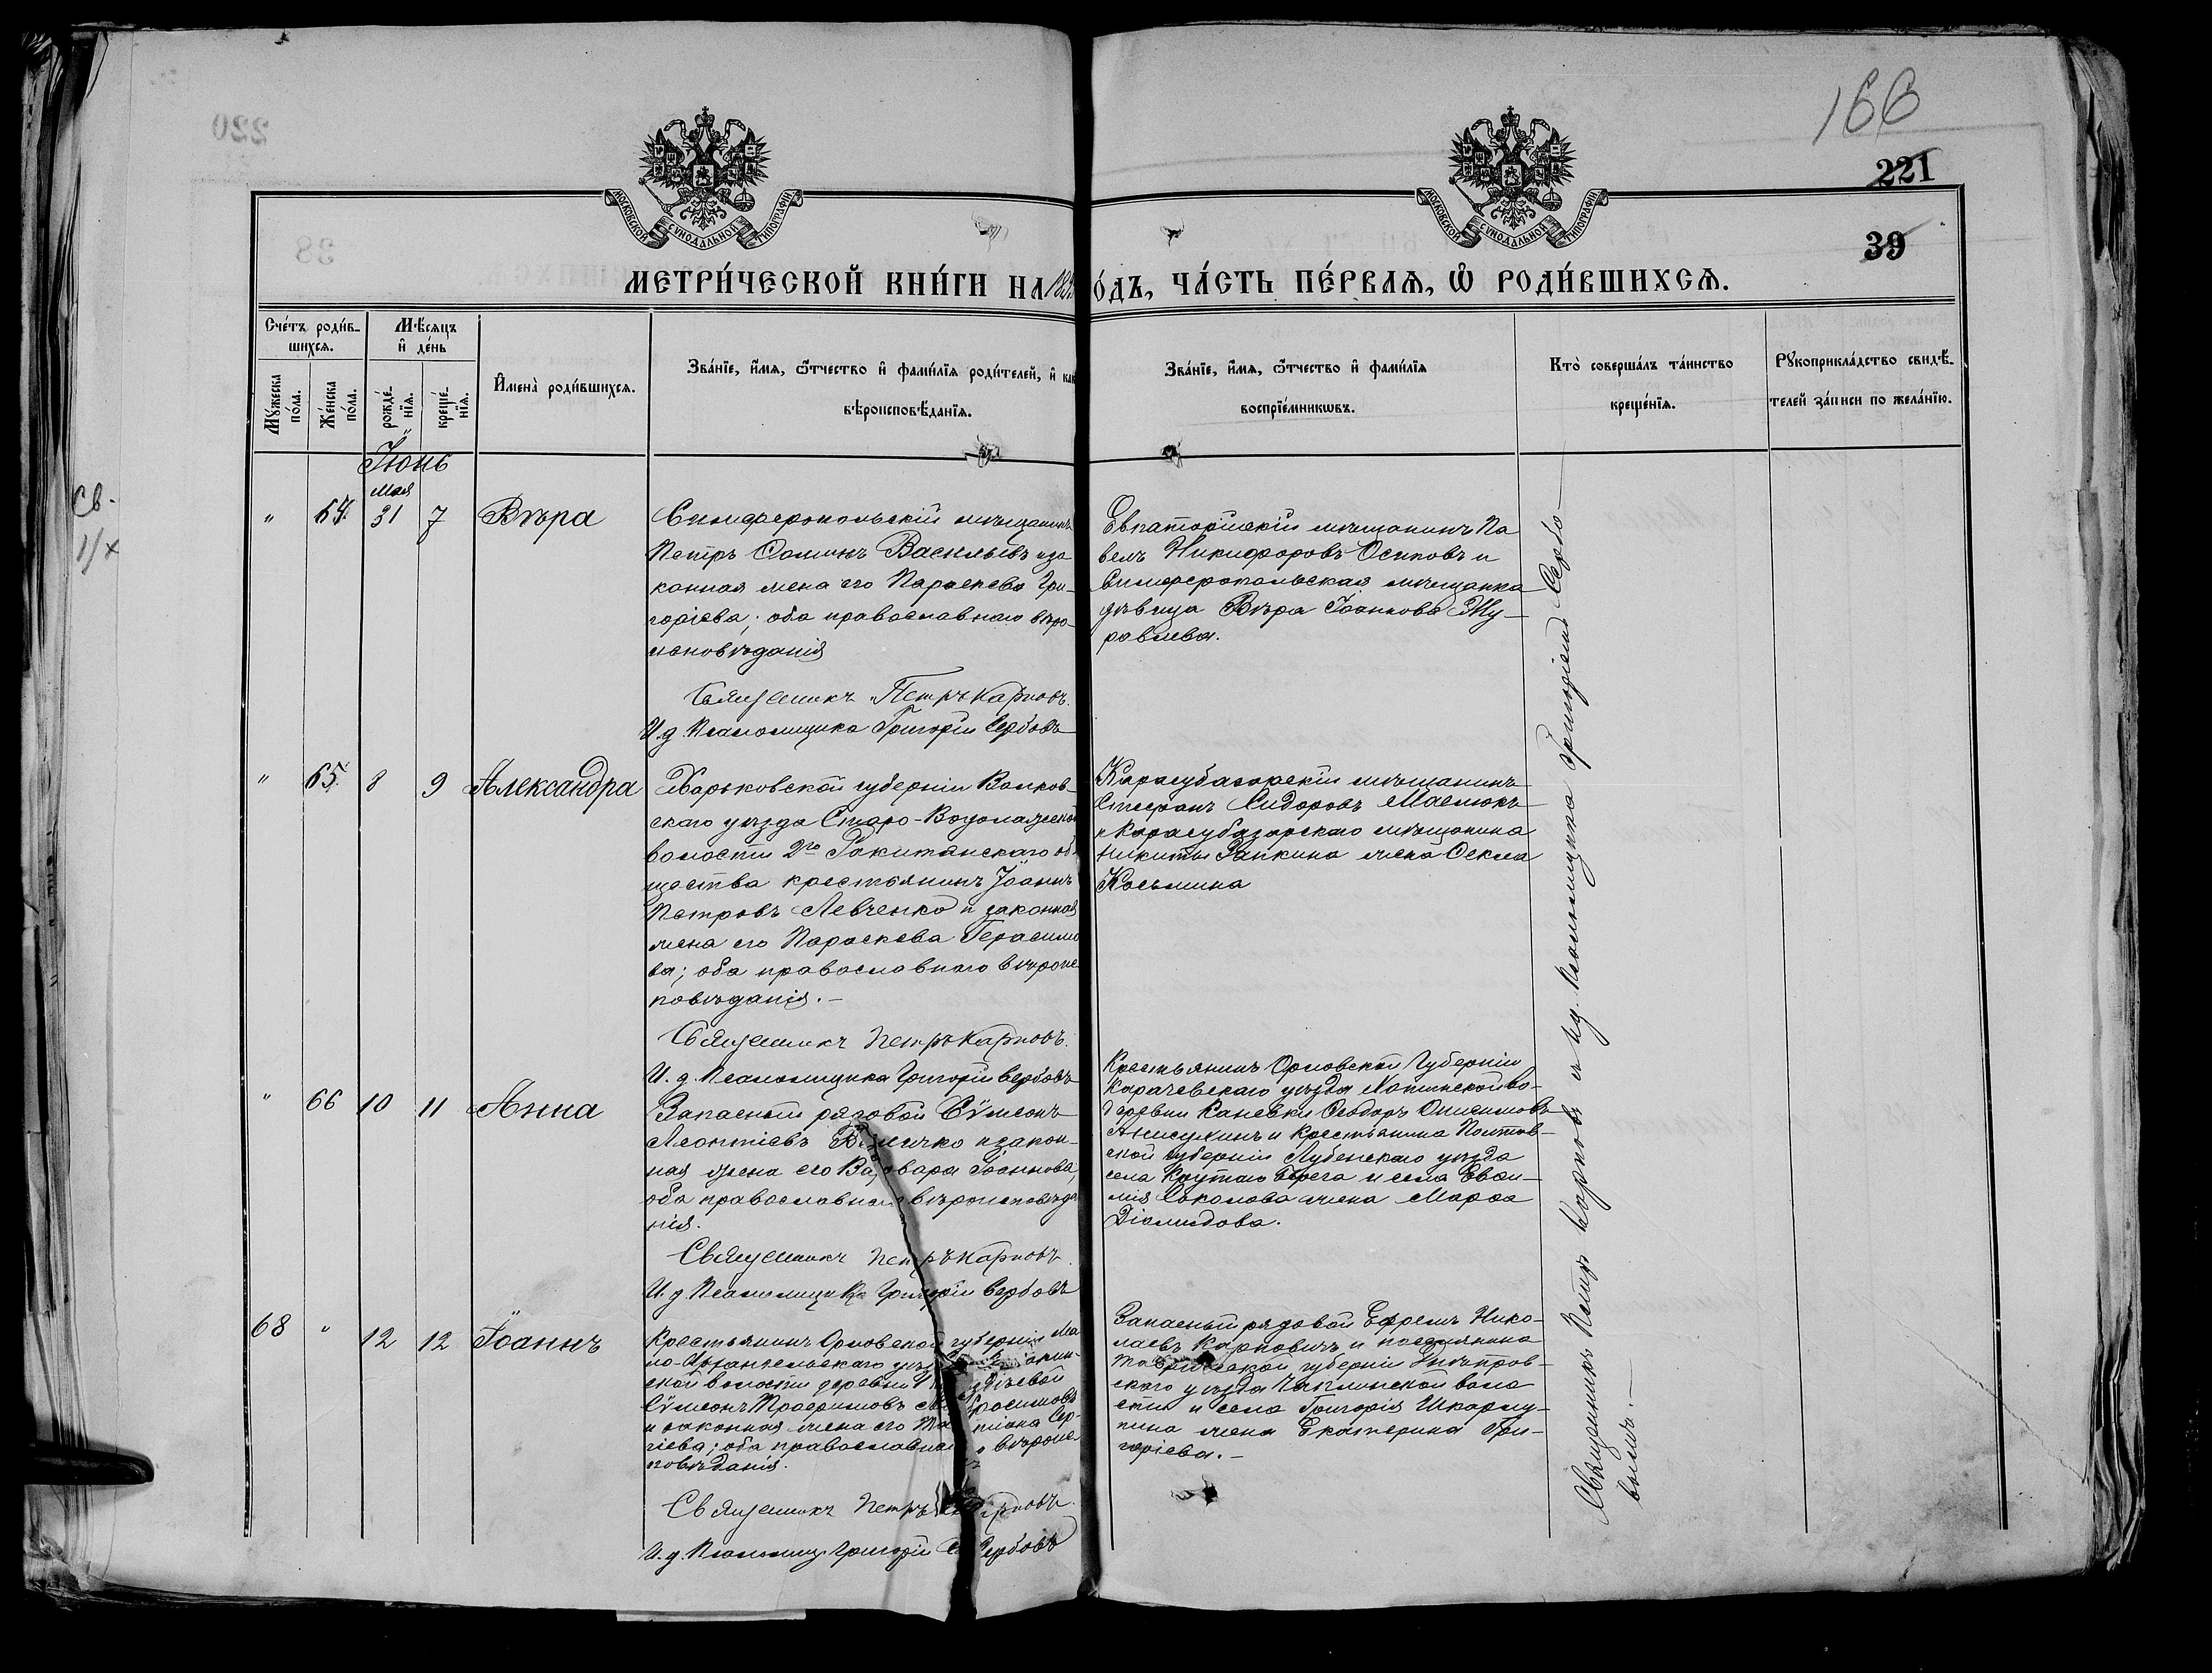 166
221
220
39
38
МОСКОВСКОЙ СѴНОДАЛЬНОЙ ТИПОГРАФІИ
МОСКОВСКОЙ СѴНОДАЛЬНОЙ ТИПОГРАФІИ
МЕТРИ́ЧЕСКОЙ КНИ́ГИ НА О́ДЪ, ЧА́СТЬ ПЕ́РВАѦ, Ѡ РОДИ́ВШИХСѦ.
Сче́тъ роди́в-
шихся.
Мѣ́сяцъ
и де́нь
Мꙋ́жеска по́ла.
Же́нска по́ла.
рожде́-нїя.
креще́-нїя.
Имена̀ роди́вшихся.
Зва́нїе, и́мя, ѻ́тчество и фами́лїя роди́телей, и как
вѣроисповѣ́данїя.
Зва́нїе, и́мя, ѻ́тчество и фами́лїя
воспрїе́мникѡвъ.
Кто̀ соверша́лъ та́инство
креще́нїя.
Рꙋкоприкла́дство свидѣ́-
телей за́писи по жела́нїю.
Іюнь
Св.
1/x
" 64. Мая 31 7 Вѣра
Симферопольскій мѣщанинъ
Петръ Васильевъ и за-
конная жена его Параскева Гри-
горіева; оба православнаго вѣро-
исповѣданія
Священникъ Петръ Карповъ.
И. д. Псаломщика Григорій Сербовъ
Евпаторійскій мѣщанинъ Па-
велъ Никифоровъ Осиповъ и
Симферопольская мѣщанка
дѣвица Вѣра Іоаннова Жу-
равлева.
" 65. 8 9 Александра
Харьковской губерніи Валков-
скаго уѣзда Старо-Водолажской
волости 2го Ракитянскаго об
щества крестьянинъ Іоаннъ
Петровъ Левченко и законная
жена его Параскева Герасимо
ва; оба православнаго вѣроис
повѣданія.-
Священникъ Петръ Карповъ.
И. д. Псаломщика Григорій Сербовъ
Карасубазарскій мѣщанинъ
Стефанъ Сидоровъ Маслюкъ
и Карасубазарскаго мѣщанина
Никиты Запкина жена Ѳекла
Косьмина
" 66 10 11 Анна
Запасный рядовой Сѵмеонъ
Леонтіевъ и закон-
ная жена его Варвара Іоаннова,
оба православнаго вѣроисповѣда
нія.
Священникъ Петръ Карповъ.
И. д. Псаломщика Григорій Сербовъ
Крестьянинъ Орловской Губерніи
Карачевскаго уѣзда во-
деревни Каневки Ѳеодоръ Онисимовъ
Анисухинъ и крестьянина Полтав-
ской губерніи Лубенскаго уѣзда
села Крутаго Берега и села Евѳи-
мія Соколова жена Марѳа
Діомидова.
68 " 12 12 Іоаннъ
Крестьянинъ Орловской губерніи Ма
ло-Архангельскаго уѣз
ской волости деревни
Сѵмеонъ Трофимовъ
и законная жена его Татіана Сер-
гіева; оба православнаго вѣроис
повѣданія.
Священникъ Петръ Карповъ.
И. д. Псаломщ. Григорій Сербовъ
Запасный рядовой Ефремъ Нико-
лаевъ Карповичъ и поселянина
Таврической губерніи Днѣпров-
скаго уѣзда Чаплинской воло
сти и села Григорія Шкарлу-
пина жена Екатерина Гри-
горіева.-
Священникъ Петръ Карповъ и и. д. Псаломщика Григорій Сербо-
вымъ.-